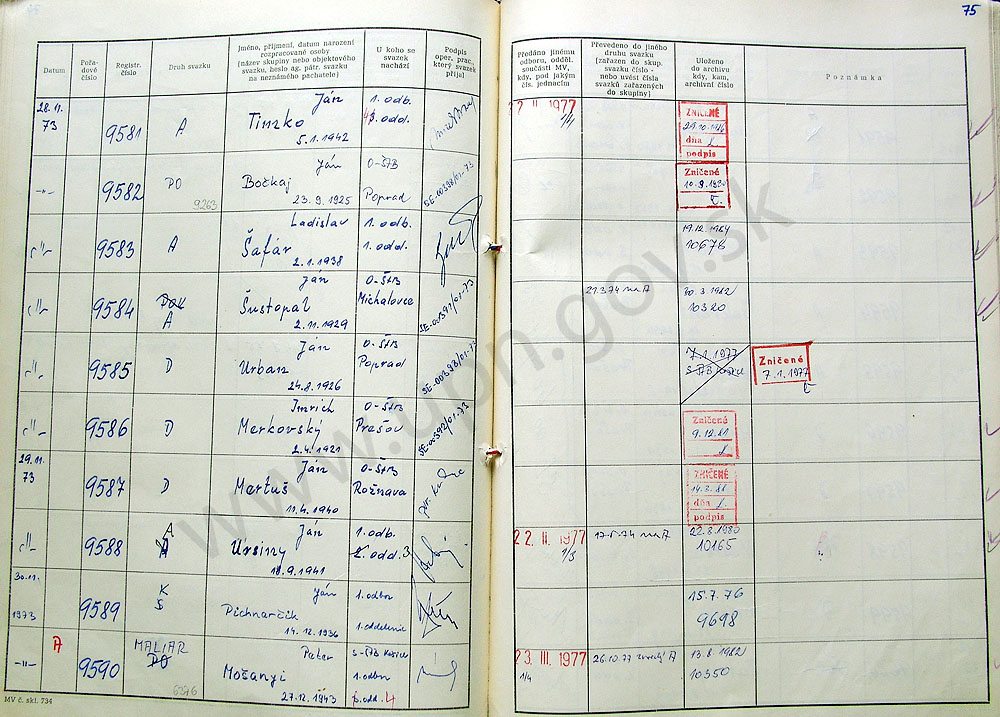 75
Datum
Pořadové číslo
Registr. číslo
Druh svazku
Jméno, příjmení, datum narození rozpracované osoby (název skupiny nebo objektového svazku, heslo ag. pátr. svazku na neznámého pachatele)
U koho se svazek nachází
Podpis oper. prac., který svazek přijal
Předáno jinému odboru, odděl. součásti MV, kdy, pod jakým čís. jednacím
Převedeno do jiného druhu svazku (zařazen do skup. svazku číslo - nebo uvést čísla svazků zařazených do skupiny)
Uloženo do archivu kdy, kam, archivní číslo
Poznámka
28.11. 73
9581
A
Ján
Timko
5.1.1942
1. odb.
odd.
II 1977
1/4
ZNIČENÉ
dňa
podpis
9582
PO
9263
Ján
Bočkaj
23.9.1925
O-ŠtB
Poprad
SE-00398/01-73
Zničené
9583
A
Ladislav
Šafár
2.1.1938
1. odb.
1. odd.
19.12.1984
10678
9584
A
Ján
Šustopal
2.11.1929
O-ŠtB
Michalovce
SE-00391/01-73
21.3.74 na A
30.3.1982
10320
9585
D
Ján
Urban
24.8.1926
O-ŠtB
Poprad
SE-00393/01-73
7.1.1977
Zničené
7.1.1977
9586
D
Imrich
Merkovský
2.4.1921
O-ŠtB
Prešov
SE-00392/01-73
Zničené
9.12.81
29.11. 73
9587
D
Ján
Mertuš
11.4.1940
O-ŠtB
Rožňava
ZNIČENÉ
14.3.86
dňa
podpis
9588
A
Ján
Ursiny
9.1941
1. odb.
odd. 3
22. II. 1977
1/3
17.5.74 na A
22.8.1980
10165
30.11. 1973
9589
K
S
Ján
Pichnarčik
14.12.1936
1. odbor
1. oddelenie
15.7.76
9698
A
9590
MALIAR
PO
6376
Peter
Mošanyi
27.12.1943
S-ŠtB Košice
1. odbor
odd. 4
23. III. 1977
1/4
26.10.77
A
13.8.1982
10350
MV č. skl. 734
www.upn.gov.sk